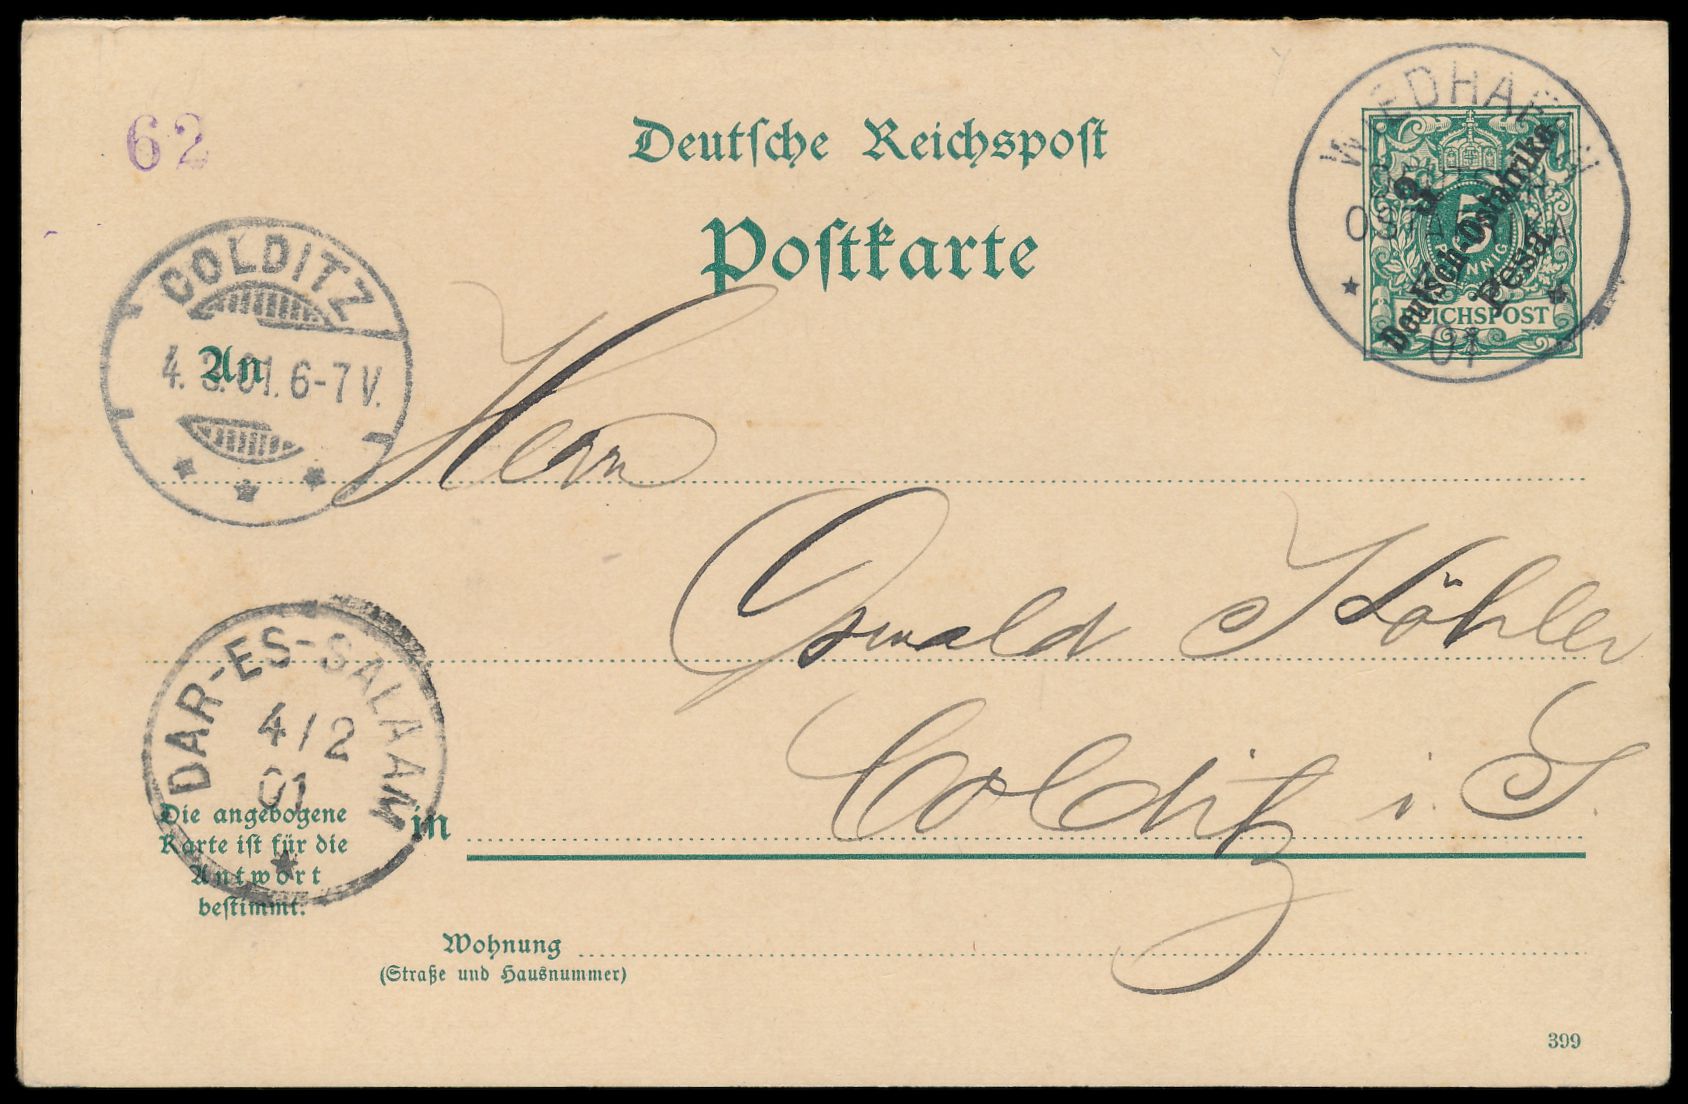 62
Deutsche Reichspost
Postkarte
WIEDHAFEN
3
Deutsch-Ostafrika
Pesa
5
PFENNIG
REICHSPOST
01
COLDITZ
4. 3. 01. 6-7 V.
An
Herrn
Oswald Köhler
DAR-ES-SALAAM
4/2
01
in Colditz i. S.
Die angebogene
Karte ist für die
Antwort
bestimmt.
Wohnung
(Straße und Hausnummer)
399